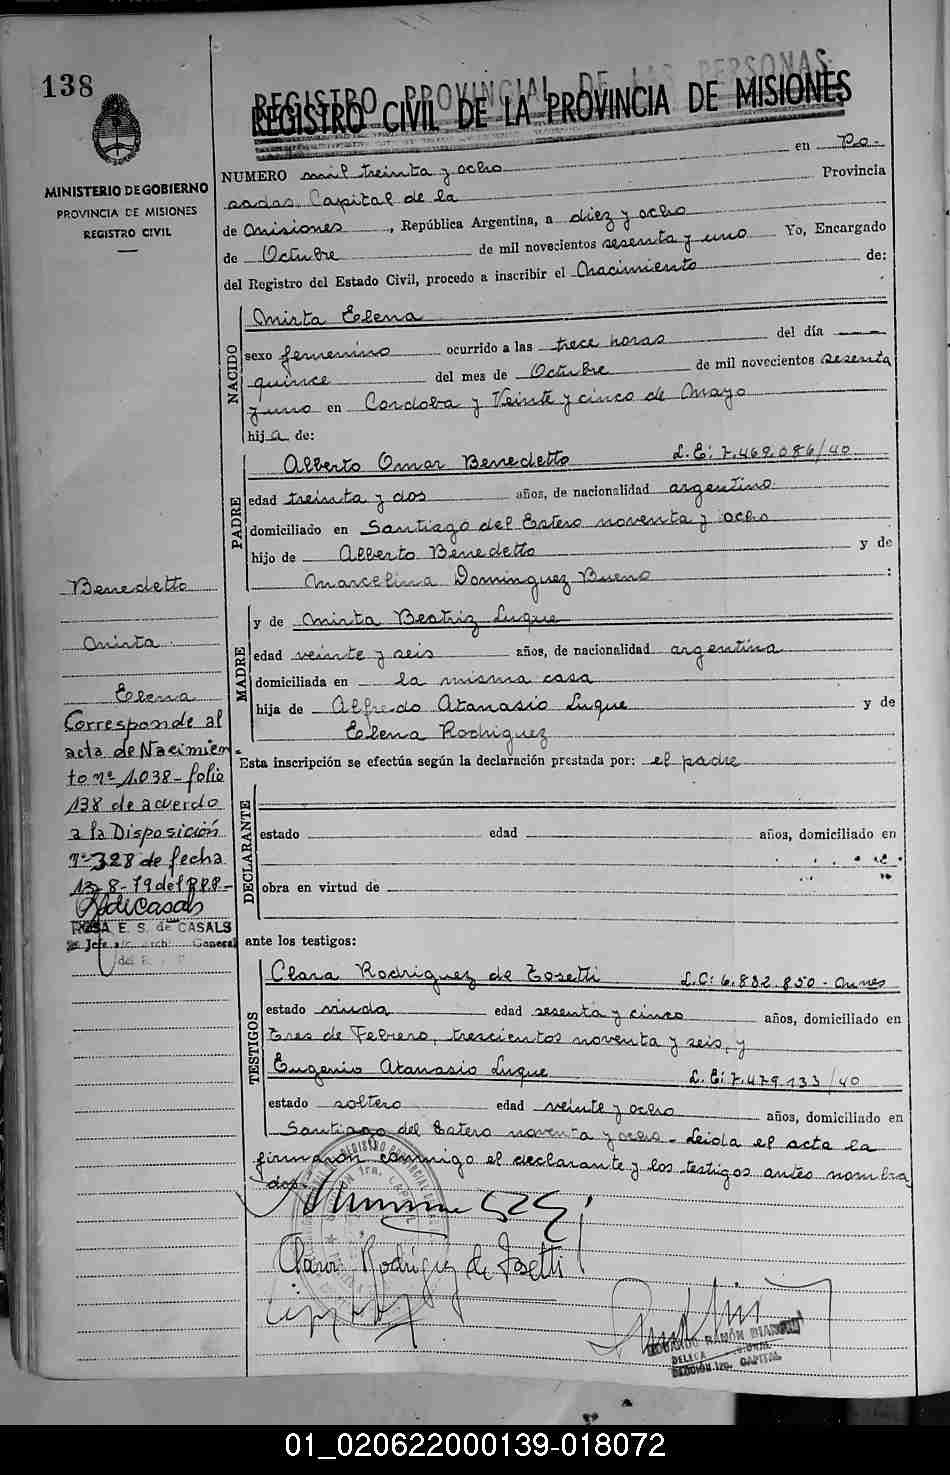 138
MINISTERIO DE GOBIERNO
PROVINCIA DE MISIONES
REGISTRO CIVIL
REGISTRO PROVINCIAL DE LAS PERSONAS
REGISTRO CIVIL DE LA PROVINCIA DE MISIONES
NUMERO mil treinta y ocho en Po-
sadas Capital de la Provincia
de Misiones, República Argentina, a diez y ocho
de Octubre de mil novecientos sesenta y uno Yo, Encargado
del Registro del Estado Civil, procedo a inscribir el Nacimiento de:
NACIDO
Mirta Elena
sexo femenino ocurrido a las trece horas del día
quince del mes de Octubre de mil novecientos sesenta
y uno en Cordoba y Veinte y cinco de Mayo
hija de:
PADRE
Alberto Omar Benedetto L.E: 7.469.086/40
edad treinta y dos años, de nacionalidad argentino
domiciliado en Santiago del Estero noventa y ocho
hijo de Alberto Benedetto y de
Marcelina Dominguez Bueno :
MADRE
y de Mirta Beatriz Luque
edad veinte y seis años, de nacionalidad argentina
domiciliada en la misma casa
hija de Alfredo Atanasio Luque y de
Elena Rodriguez
Esta inscripción se efectúa según la declaración prestada por: el padre
DECLARANTE
estado edad años, domiciliado en
obra en virtud de
ante los testigos:
TESTIGOS
Clara Rodriguez de Tosetti L.C: 6.832.850-
estado viuda edad sesenta y cinco años, domiciliado en
Tres de Febrero, trescientos noventa y seis, y
Eugenio Atanasio Luque L.E: 7.479.133/40
estado soltero edad veinte y ocho años, domiciliado en
Santiago del Estero noventa y ocho - Leida el acta la
firmaron conmigo el declarante y los testigos antes nombra
dos.
Clara Rodriguez de Tosetti
EDUARDO RAMÓN
SECCIÓN 1ra. CAPITAL
Benedetto
Mirta
Elena
Corresponde al
acta de Nacimien
to nº 1.038- folio
138 de acuerdo
a la Disposición
nº 328 de fecha
13-8-79 del R.P.P.-
ROSA E. S. de CASALS
Jefe Arch. General
01_020622000139-018072